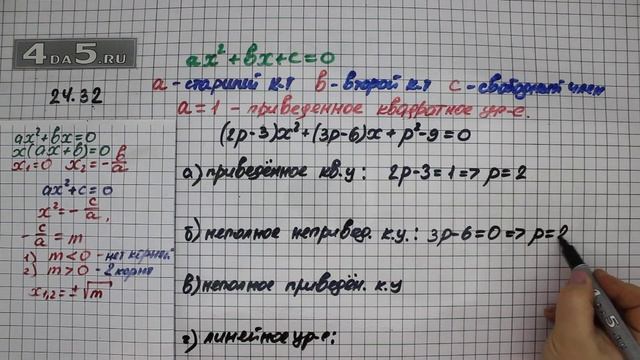 4DA5.RU
24.32
ax²+bx+c=0
a-старший к.т b-второй к.т c-свободный член
a=1 - приведенное квадратное ур-е.
(2p-3)x²+(3p-6)x+p²-9=0
а) приведённое кв.у: 2p-3=1=> p=2
б) неполное непривед. к.у.: 3p-6=0=> p=2
в) неполное приведён. к.у
г) линейное ур-е:
ax²+bx=0
x(ax+b)=0
x₁=0 x₂=-b/a
ax²+c=0
x²=-c/a,
-c/a=m
1) m<0-нет корней
2) m>0-2 корня
x₁,₂=±√m
4DA5